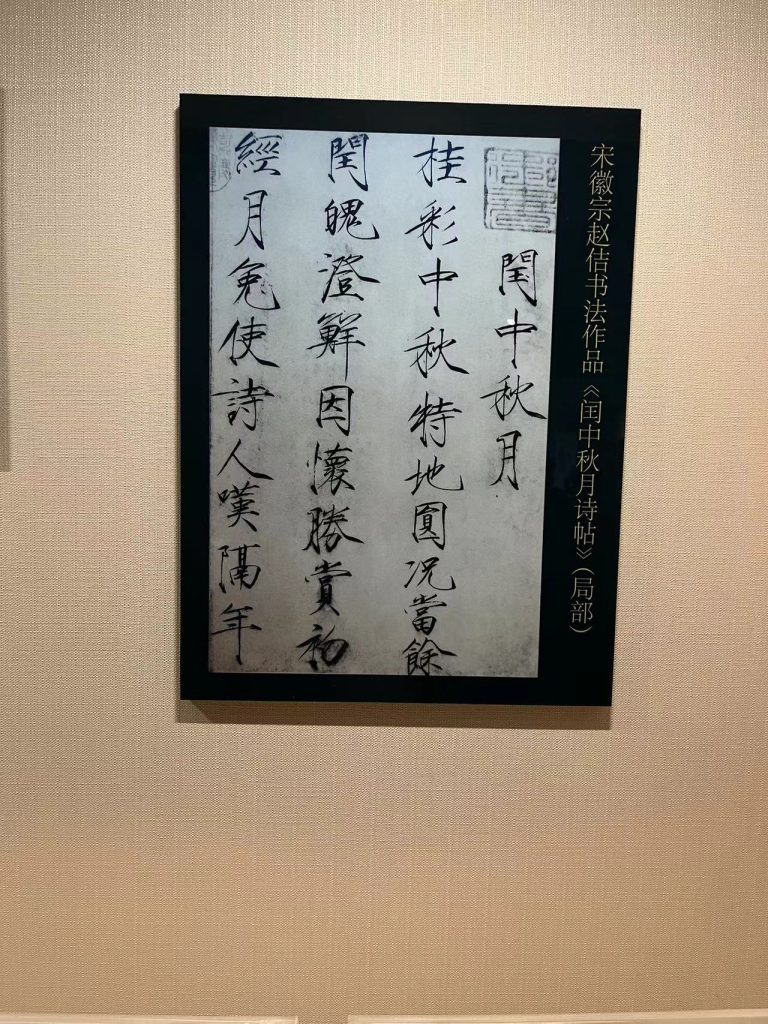 宋徽宗赵佶书法作品《闰中秋月诗帖》(局部)
閏中秋月
桂彩中秋特地圓况當餘
閏魄澄鮮因懷勝賞初
經月免使詩人嘆隔年